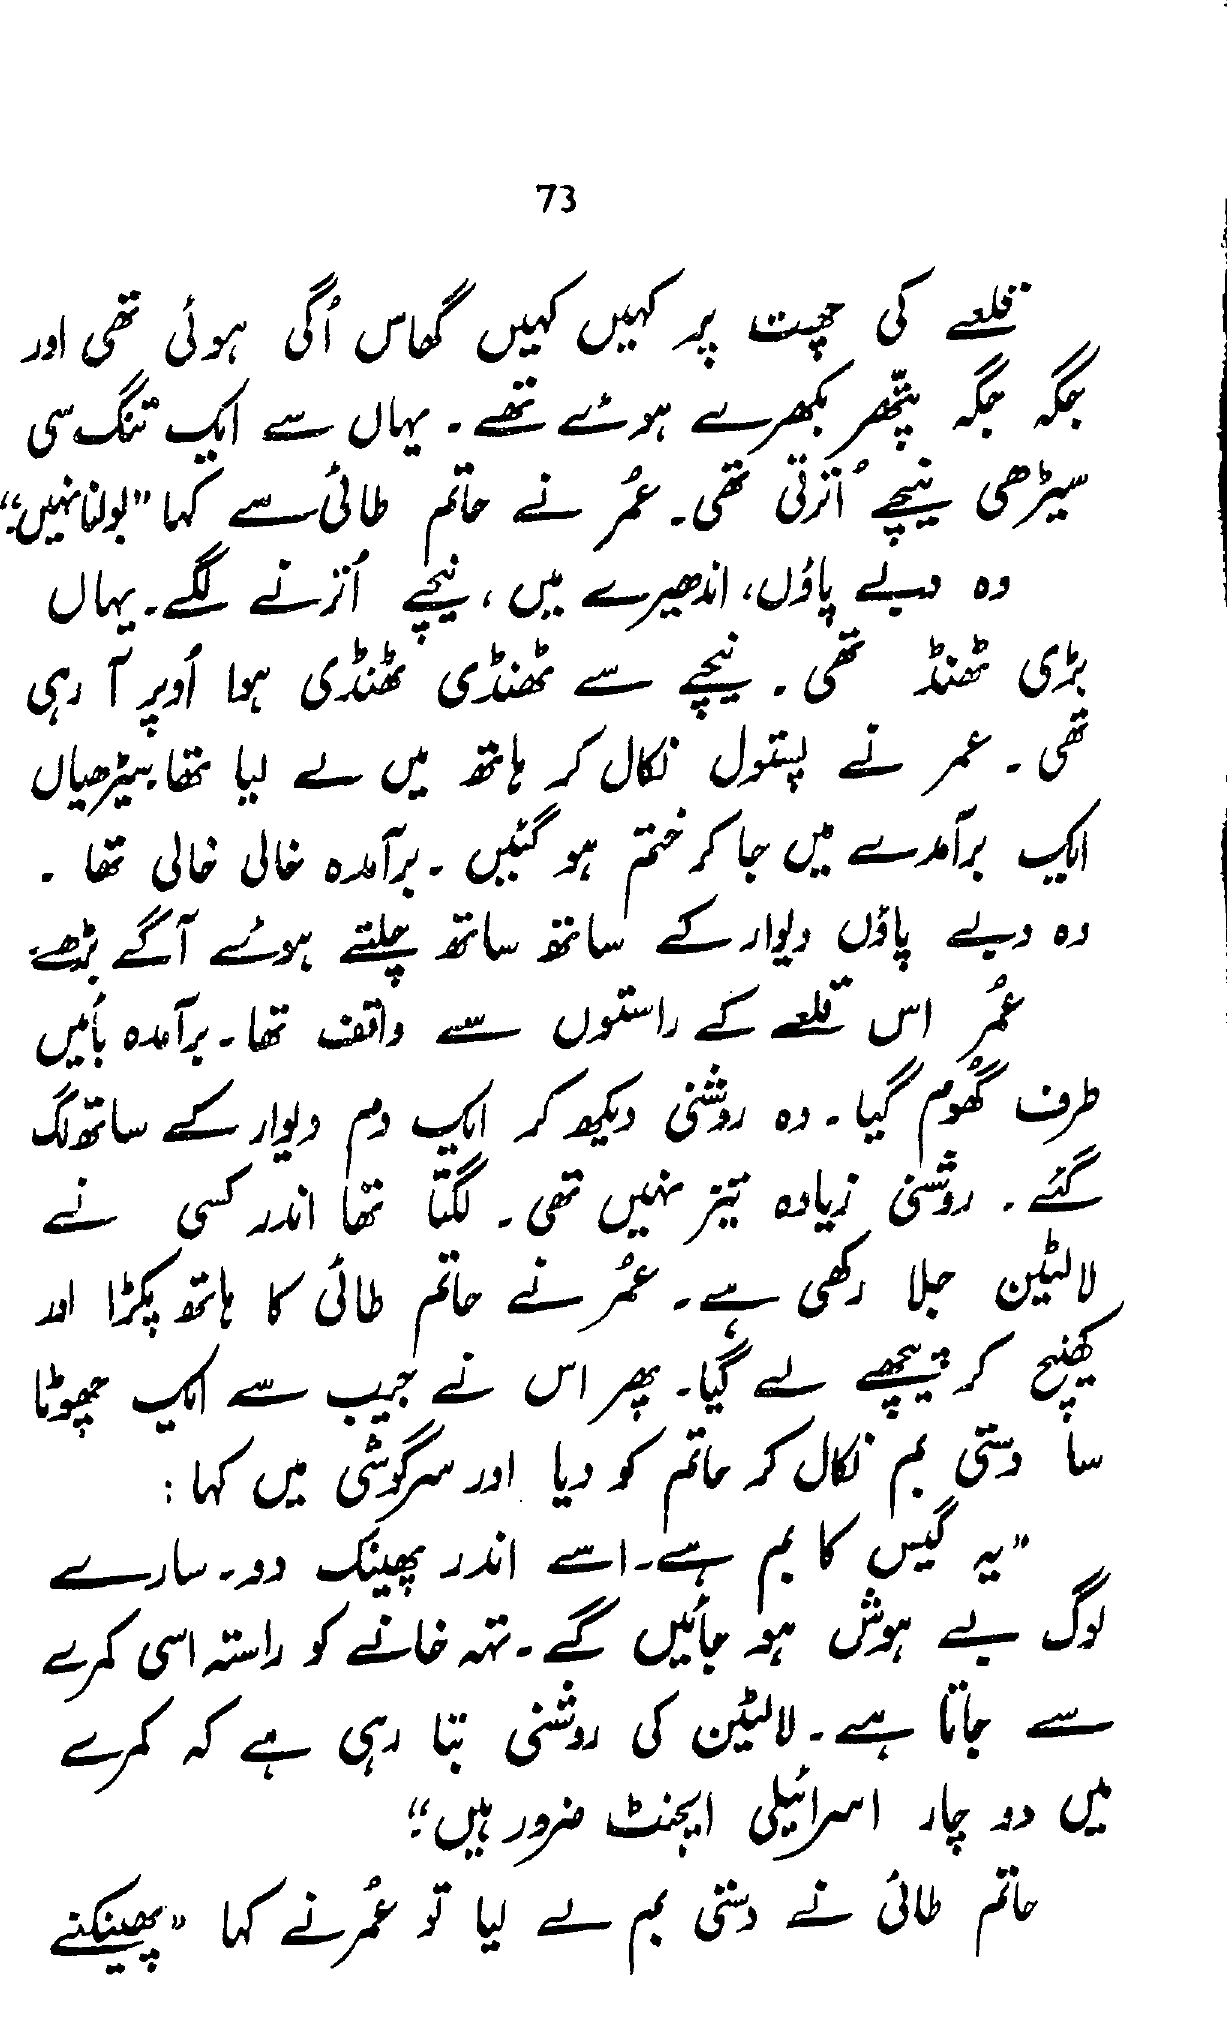 73
قلعے کی چھت پر کہیں کہیں گھاس اُگی ہوئی تھی اور
جگہ جگہ پتھر بکھرے ہوئے تھے۔ یہاں سے ایک تنگ سی
سیڑھی نیچے اُترتی تھی۔ عمُر نے حاتم طائی سے کہا "بولنا نہیں۔"
وہ دبے پاؤں، اندھیرے میں، نیچے اُترنے لگے۔ یہاں
بڑی ٹھنڈ تھی۔ نیچے سے ٹھنڈی ٹھنڈی ہوا اُوپر آ رہی
تھی۔ عمر نے پستول نکال کر ہاتھ میں لے لیا تھا۔ سیڑھیاں
ایک برآمدے میں جا کر ختم ہو گئیں۔ برآمدہ خالی خالی تھا۔
وہ دبے پاؤں دیوار کے ساتھ ساتھ چلتے ہوئے آگے بڑھے۔
عمُر اس قلعے کے راستوں سے واقف تھا۔ برآمدہ بائیں
طرف گھُوم گیا۔ وہ روشنی دیکھ کر ایک دم دیوار کے ساتھ لگ
گئے۔ روشنی زیادہ تیز نہیں تھی۔ لگتا تھا اندر کسی نے
لالٹین جلا رکھی ہے۔ عمُر نے حاتم طائی کا ہاتھ پکڑا اور
کھینچ کر پیچھے لے گیا۔ پھر اس نے جیب سے ایک چھوٹا
سا دستی بم نکال کر حاتم کو دیا اور سرگوشی میں کہا :
"یہ گیس کا بم ہے۔ اسے اندر پھینک دو۔ سارے
لوگ بے ہوش ہو جائیں گے۔ تہہ خانے کو راستہ اسی کمرے
سے جاتا ہے۔ لالٹین کی روشنی بتا رہی ہے کہ کمرے
میں دو چار اسرائیلی ایجنٹ ضرور ہیں۔"
حاتم طائی نے دستی بم لے لیا تو عمُر نے کہا "پھینکنے